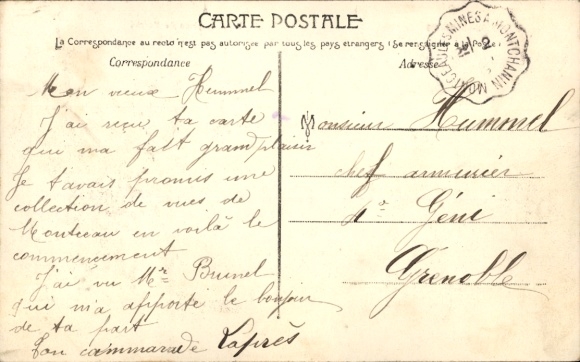 CARTE POSTALE
La Correspondance au recto n'est pas autorisée par tous les pays étrangers (Se renseigner à la Poste)
Correspondance
Adresse
MONTCEAU-LES-MINES A MONTCHANIN
Mon vieux Hummel
J'ai reçu ta carte
qui ma fait grand plaisir
Je t'avais promis une
collection de vues de
Montceau en voilà le
commencement
J'ai vu Mr Brunel
qui m'a apporté le bonjour
de ta part
Ton cammarade Laprès
Monsieur Hummel
chef armurier
4e Géni
Grenoble